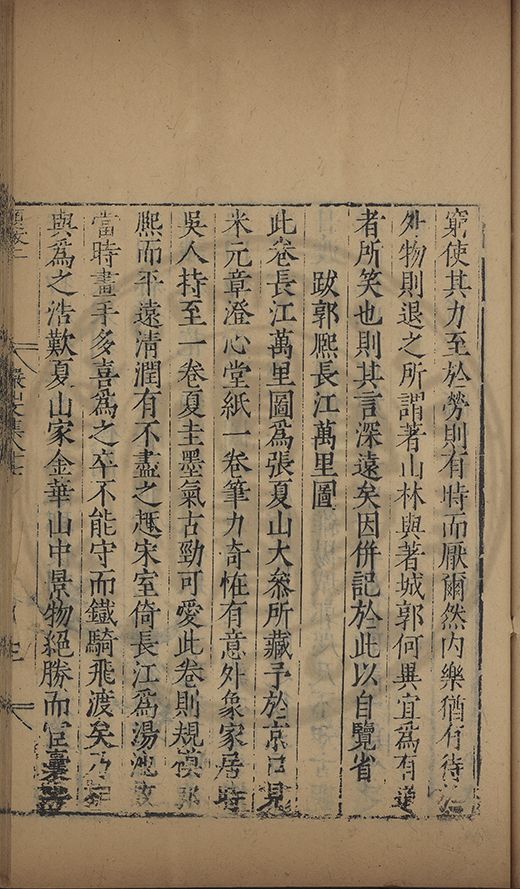 窮使其力至於勞則有時而厭爾然內樂猶有待於
外物則退之所謂著山林與著城郭何異宜為有道
者所笑也則其言深遠矣因併記於此以自覽省
跋郭熈長江萬里圖
此卷長江萬里圖為張夏山大叅所藏予於京口見
米元章澄心堂紙一卷筆力奇恠有意外象家居時
吳人持至一卷夏圭墨氣古勁可愛此卷則規模郭
熈而平遠清潤有不盡之趣宋室倚長江為湯池故
當時畫手多喜為之卒不能守而鐵騎飛渡矣乃
與為之浩歎夏山家金華山中景物絕勝而宦囊